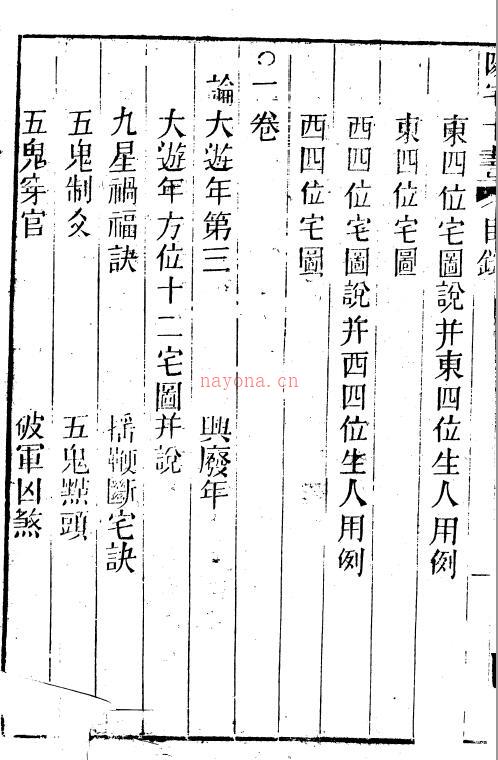 目錄
東四位宅圖說并東四位生人用例
東四位宅圖
西四位宅圖說并西四位生人用例
西四位宅圖
○一卷
論大遊年第三 興廢年
大遊年方位十二宅圖并說
九星禍福訣 揺鞭斷宅訣
五鬼制 五鬼點頭
五鬼穿官 破軍凶煞
nayona.cn